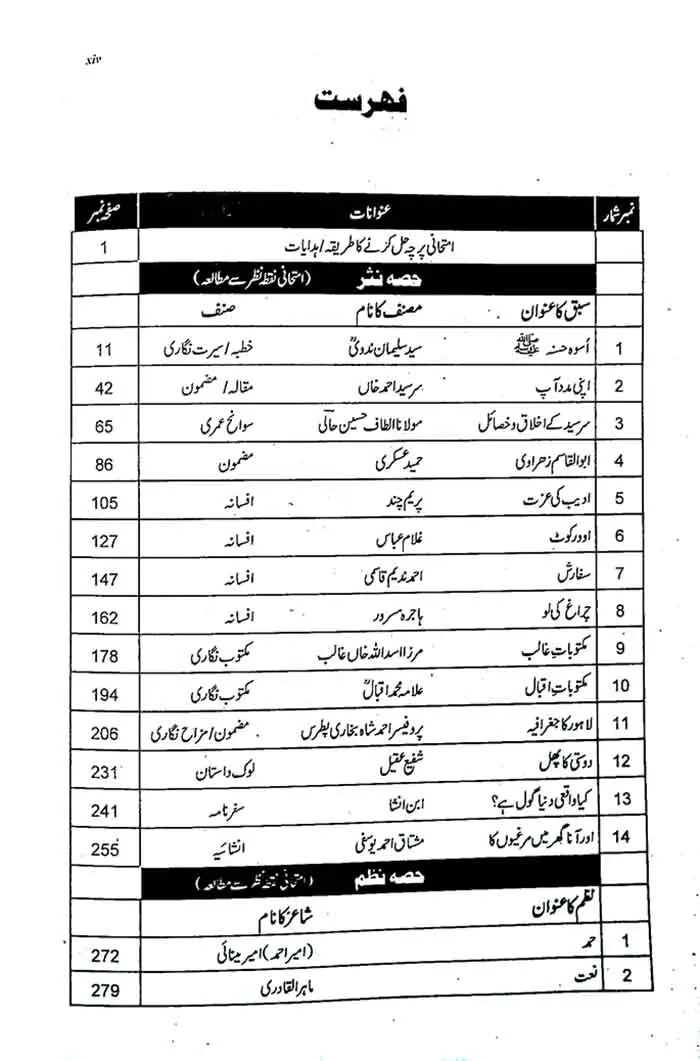 xiv
فہرست
نمبر شمار عنوانات صفحہ نمبر
امتحانی پرچہ حل کرنے کا طریقہ / ہدایات 1
حصہ نثر (امتحانی نقطۂ نظر سے مطالعہ)
سبق کا عنوان مصنف کا نام صنف
1 اُسوہ حسنہ ﷺ سید سلیمان ندویؒ خطبہ / سیرت نگاری 11
2 اپنی مدد آپ سرسید احمد خاں مقالہ / مضمون 42
3 سرسید کے اخلاق و خصائل مولانا الطاف حسین حالی سوانح عمری 65
4 ابوالقاسم زہراوی حمید عسکری مضمون 86
5 ادیب کی عزت پریم چند افسانہ 105
6 اوورکوٹ غلام عباس افسانہ 127
7 سفارش احمد ندیم قاسمی افسانہ 147
8 چراغ کی لو ہاجرہ مسرور افسانہ 162
9 مکتوباتِ غالب مرزا اسد اللہ خاں غالب مکتوب نگاری 178
10 مکتوباتِ اقبال علامہ محمد اقبالؒ مکتوب نگاری 194
11 لاہور کا جغرافیہ پروفیسر احمد شاہ بخاری پطرس مضمون / مزاح نگاری 206
12 دوستی کا پھل شفیع عقیل لوک داستان 231
13 کیا واقعی دنیا گول ہے؟ ابن انشا سفر نامہ 241
14 اور آنا گھر میں مرغیوں کا مشتاق احمد یوسفی انشائیہ 255
حصہ نظم (امتحانی نقطۂ نظر سے مطالعہ)
نظم کا عنوان شاعر کا نام
1 حمد (امیر احمد) امیر مینائی 272
2 نعت ماہر القادری 279